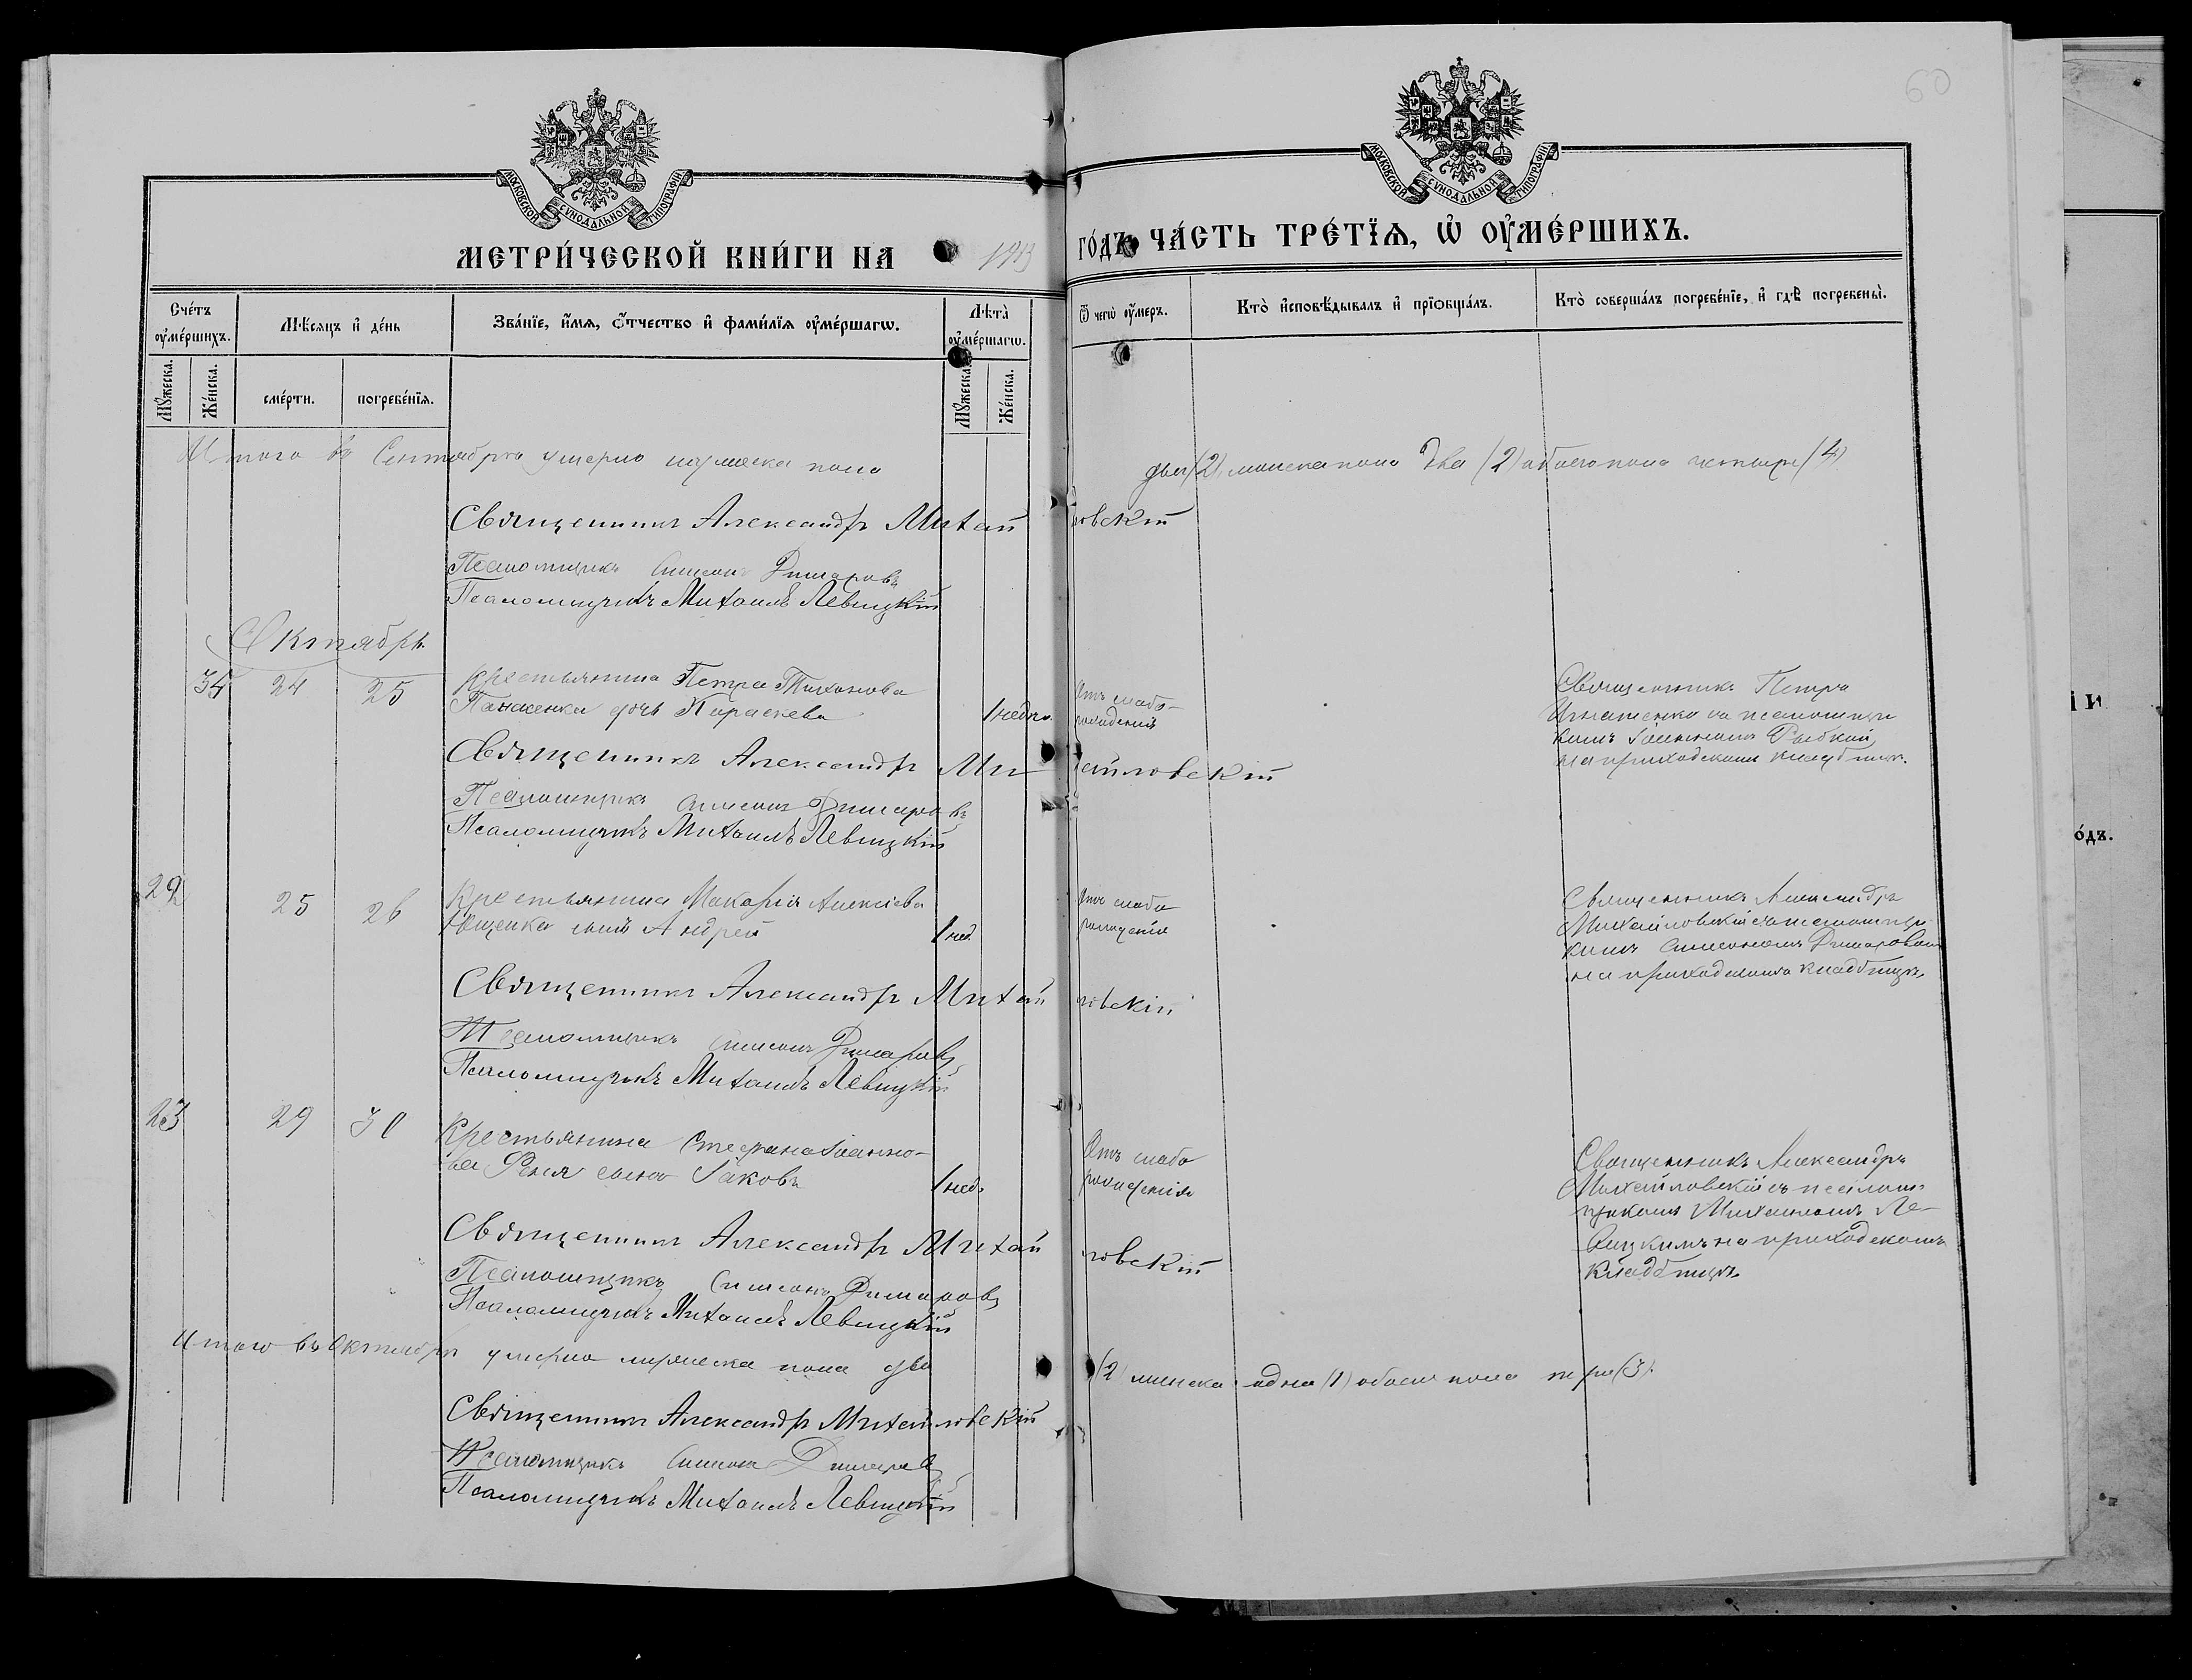 60
МОСКОВСКОЙ СѴНОДАЛЬНОЙ ТИПОГРАФІИ
МОСКОВСКОЙ СѴНОДАЛЬНОЙ ТИПОГРАФІИ
МЕТРИ́ЧЕСКОЙ КНИ́ГИ НА
ГО́ДЪ ЧА́СТЬ ТРЕ́ТЇѦ, Ѡ҆ ОУ҆МЕ́РШИХЪ.
Сче́тъ оу҆ме́ршихъ.
Мѣ́сѧцъ и҆ де́нь
Зва́нїе, и҆́мѧ, ѻ҆́тчество и҆ фами́лїѧ оу҆ме́ршагѡ.
Лѣ̀та оу҆ме́ршагѡ.
Ѿ чегѡ̀ оу҆́меръ.
Кто̀ и҆сповѣ́дывалъ и҆ прїѡбща́лъ.
Кто̀ соверша́лъ погребе́нїе, и҆ гдѣ̀ погребены̀.
Мꙋ́жеска.
Же́нска.
сме́рти.
погребе́нїѧ.
Мꙋ́жеска.
Же́нска.
Итого въ Сентябрѣ умерло мужеска пола
два (2) женска пола два (2) обоего пола четыре (4)
Священникъ Александръ Михайловскій
Псаломщикъ Симеонъ
Псаломщикъ Михаилъ Левицкій
Октябрь
34 24 25 Крестьянина Петра Тихонова
Панасенка дочь Параскева 1 недѣл.
Отъ слабо-
рожденія
Священникъ Петръ
Игнатенко съ псаломщи
комъ Іоанномъ
на приходскомъ кладбищѣ.
Священникъ Александръ Михайловскій
Псаломщикъ Симеонъ
Псаломщикъ Михаилъ Левицкій
22 25 26 Крестьянина Макарія Алексіева
сынъ Андрей 1 нед.
Отъ слабо
рожденія
Священникъ Александръ
Михайловскій съ псаломщи
комъ Симеономъ
на приходскомъ кладбищѣ
Священникъ Александръ Михайловскій
Псаломщикъ Симеонъ
Псаломщикъ Михаилъ Левицкій
23 29 30 Крестьянина Стефана Іоанно-
ва сынъ Іаковъ 1 нед.
Отъ слабо
рожденія
Священникъ Александръ
Михайловскій съ псалом
щикомъ Михаиломъ Ле-
вицкимъ на приходскомъ
кладбищѣ
Священникъ Александръ Михайловскій
Псаломщикъ Симеонъ
Псаломщикъ Михаилъ Левицкій
Итого въ Октябрѣ умерло мужеска пола два
(2) женска одна (1) обоего пола три (3).
Священникъ Александръ Михайловскій
Псаломщикъ Симеонъ
Псаломщикъ Михаилъ Левицкій